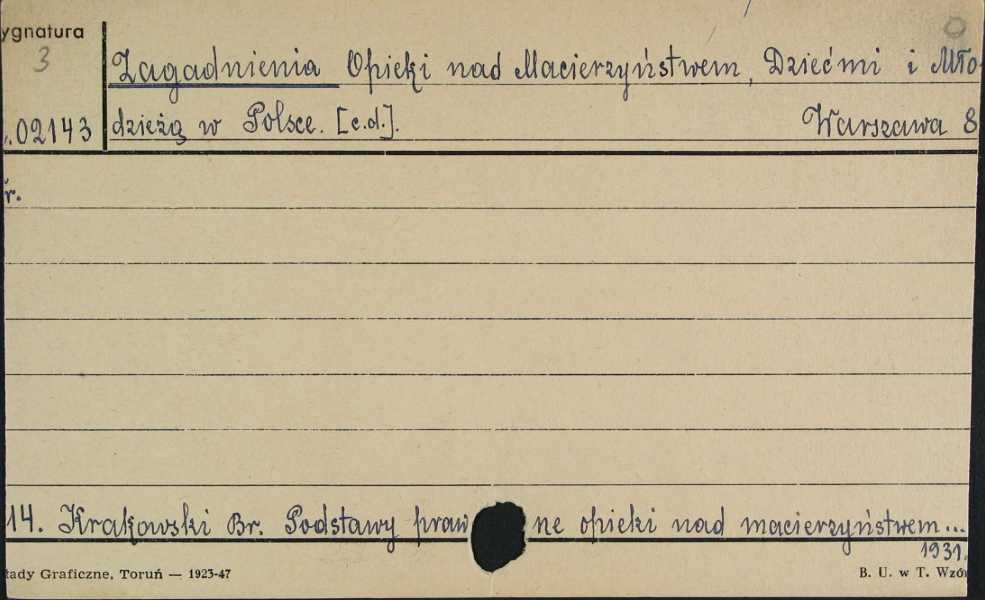 ygnatura
3
02143
Zagadnienia Opieki nad Macierzyństwem, Dziećmi i Mło-
dzieżą w Polsce. [c.d.]. Warszawa 8
r.
14. Krakowski Br. Podstawy praw ne opieki nad macierzyństwem...
1931.
łady Graficzne, Toruń — 1923-47 B. U. w T. Wzór